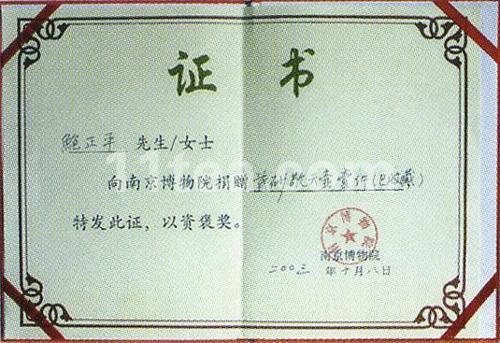 证书
鲍正平 先生/女士
向南京博物院捐赠 紫砂 (已收藏)
特发此证，以资褒奖。
南京博物院
南京博物院
二00三年十月八日